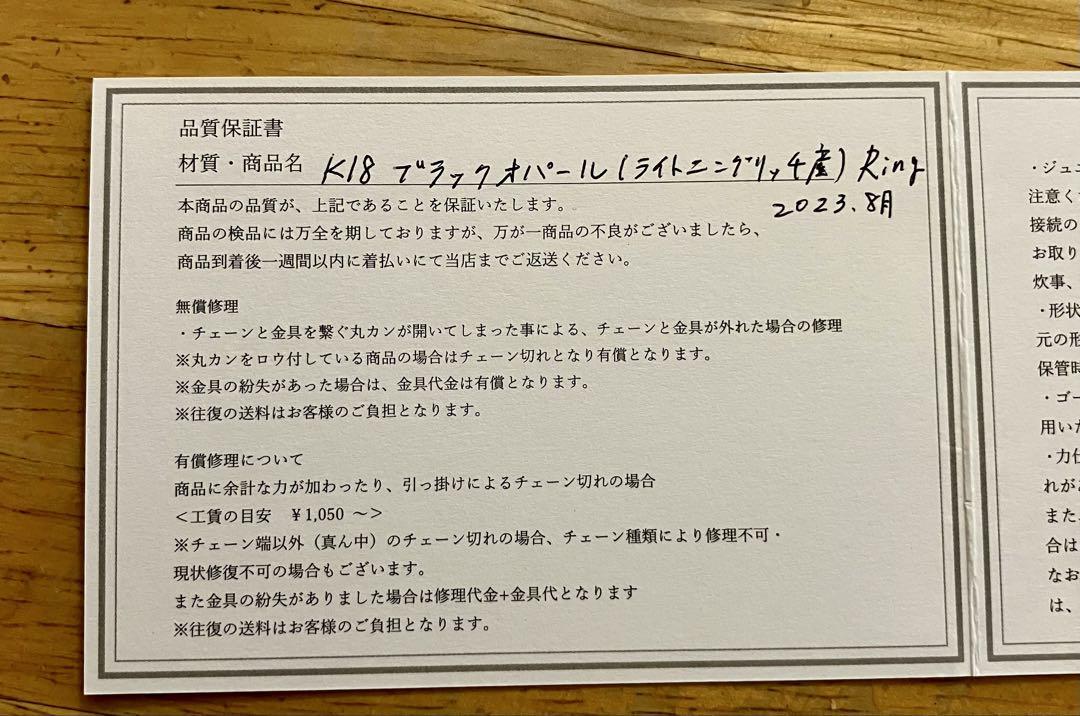 品質保証書
材質・商品名 K18 ブラックオパール(ライトニングリッチ産) Ring
2023.8月
本商品の品質が、上記であることを保証いたします。
商品の検品には万全を期しておりますが、万が一商品の不良がございましたら、
商品到着後一週間以内に着払いにて当店までご返送ください。
無償修理
・チェーンと金具を繋ぐ丸カンが開いてしまった事による、チェーンと金具が外れた場合の修理
※丸カンをロウ付している商品の場合はチェーン切れとなり有償となります。
※金具の紛失があった場合は、金具代金は有償となります。
※往復の送料はお客様のご負担となります。
有償修理について
商品に余計な力が加わったり、引っ掛けによるチェーン切れの場合
<工賃の目安 ¥1,050 ~>
※チェーン端以外(真ん中)のチェーン切れの場合、チェーン種類により修理不可・
現状修復不可の場合もございます。
また金具の紛失がありました場合は修理代金+金具代となります
※往復の送料はお客様のご負担となります。
・ジュエ
注意く
接続の
お取り
炊事、
・形状
元の形
保管時
・ゴー
用いた
・力仕
れがあ
また
合は
なお
は、